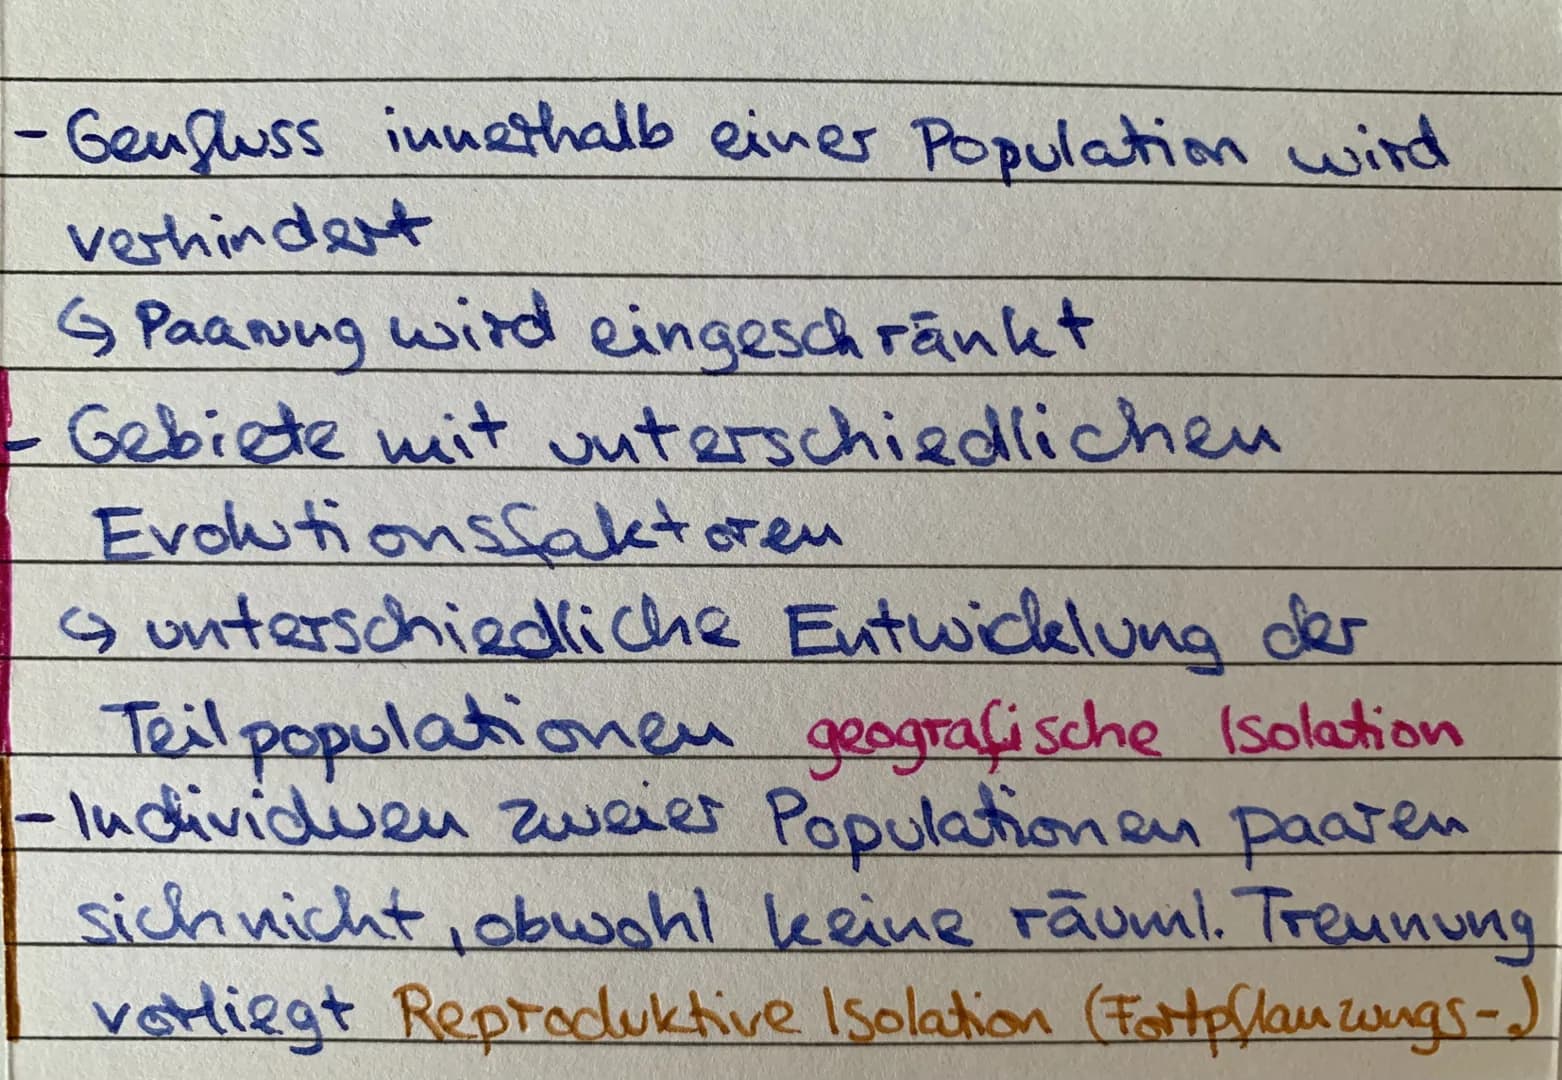 - Genfluss innerhalb einer Population wird
verhindert
↳ Paarung wird eingeschränkt
- Gebiete mit unterschiedlichen
Evolutionsfaktoren
↳ unterschiedliche Entwicklung der
Teilpopulationen geografische Isolation
- Individuen zweier Populationen paaren
sich nicht, obwohl keine räuml. Trennung
vorliegt Reproduktive Isolation (Fortpflanzungs-.)